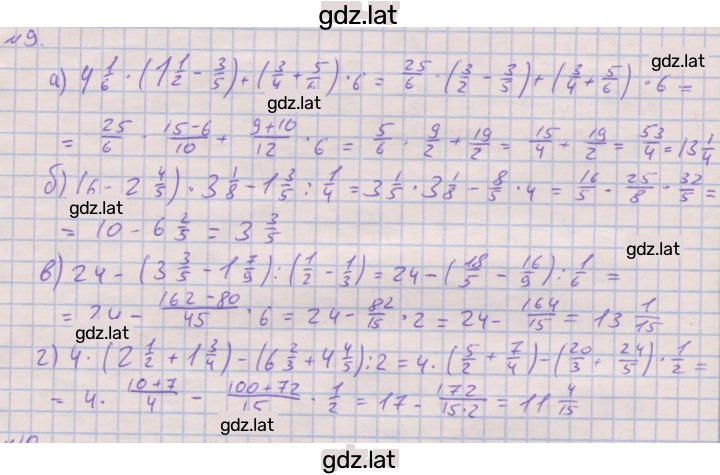 gdz.lat
№9.
gdz.lat
а) 4 1/6 · (1 1/2 - 3/5) + (3/4 + 5/6) · 6 = 25/6 · (3/2 - 3/5) + (3/4 + 5/6) · 6 =
gdz.lat
= 25/6 · (15-6)/10 + (9+10)/12 · 6 = 5/6 · 9/2 + 19/2 = 15/4 + 19/2 = 53/4 = 13 1/4
б) (6 - 2 4/5) · 3 1/8 - 1 3/5 : 1/4 = 3 1/5 · 3 1/8 - 8/5 · 4 = 16/5 · 25/8 - 32/5 =
= 10 - 6 2/5 = 3 3/5
gdz.lat
в) 24 - (3 3/5 - 1 7/9) : (1/2 - 1/3) = 24 - (18/5 - 16/9) : 1/6 =
= 24 - (162-80)/45 · 6 = 24 - 82/15 · 2 = 24 - 164/15 = 13 1/15
gdz.lat
г) 4 · (2 1/2 + 1 3/4) - (6 2/3 + 4 4/5) : 2 = 4 · (5/2 + 7/4) - (20/3 + 24/5) · 1/2 =
= 4 · (10+7)/4 - (100+72)/15 · 1/2 = 17 - 172/(15·2) = 11 4/15
gdz.lat